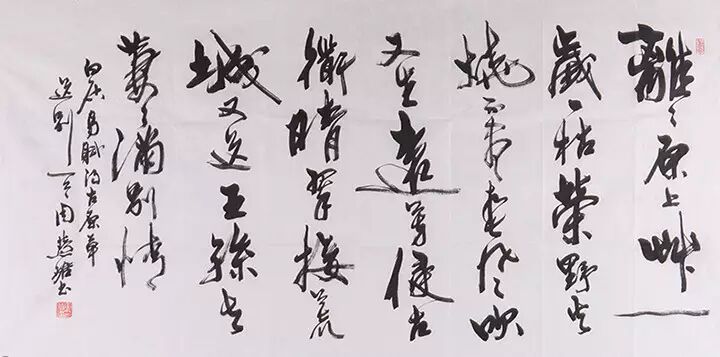 離〻原上艸一
歲一枯榮野火
燒不盡春風吹
又生遠芳侵古
衜晴翠接荒
城又送王孫去
萋〻滿別情
白居易賦得古原草
送別